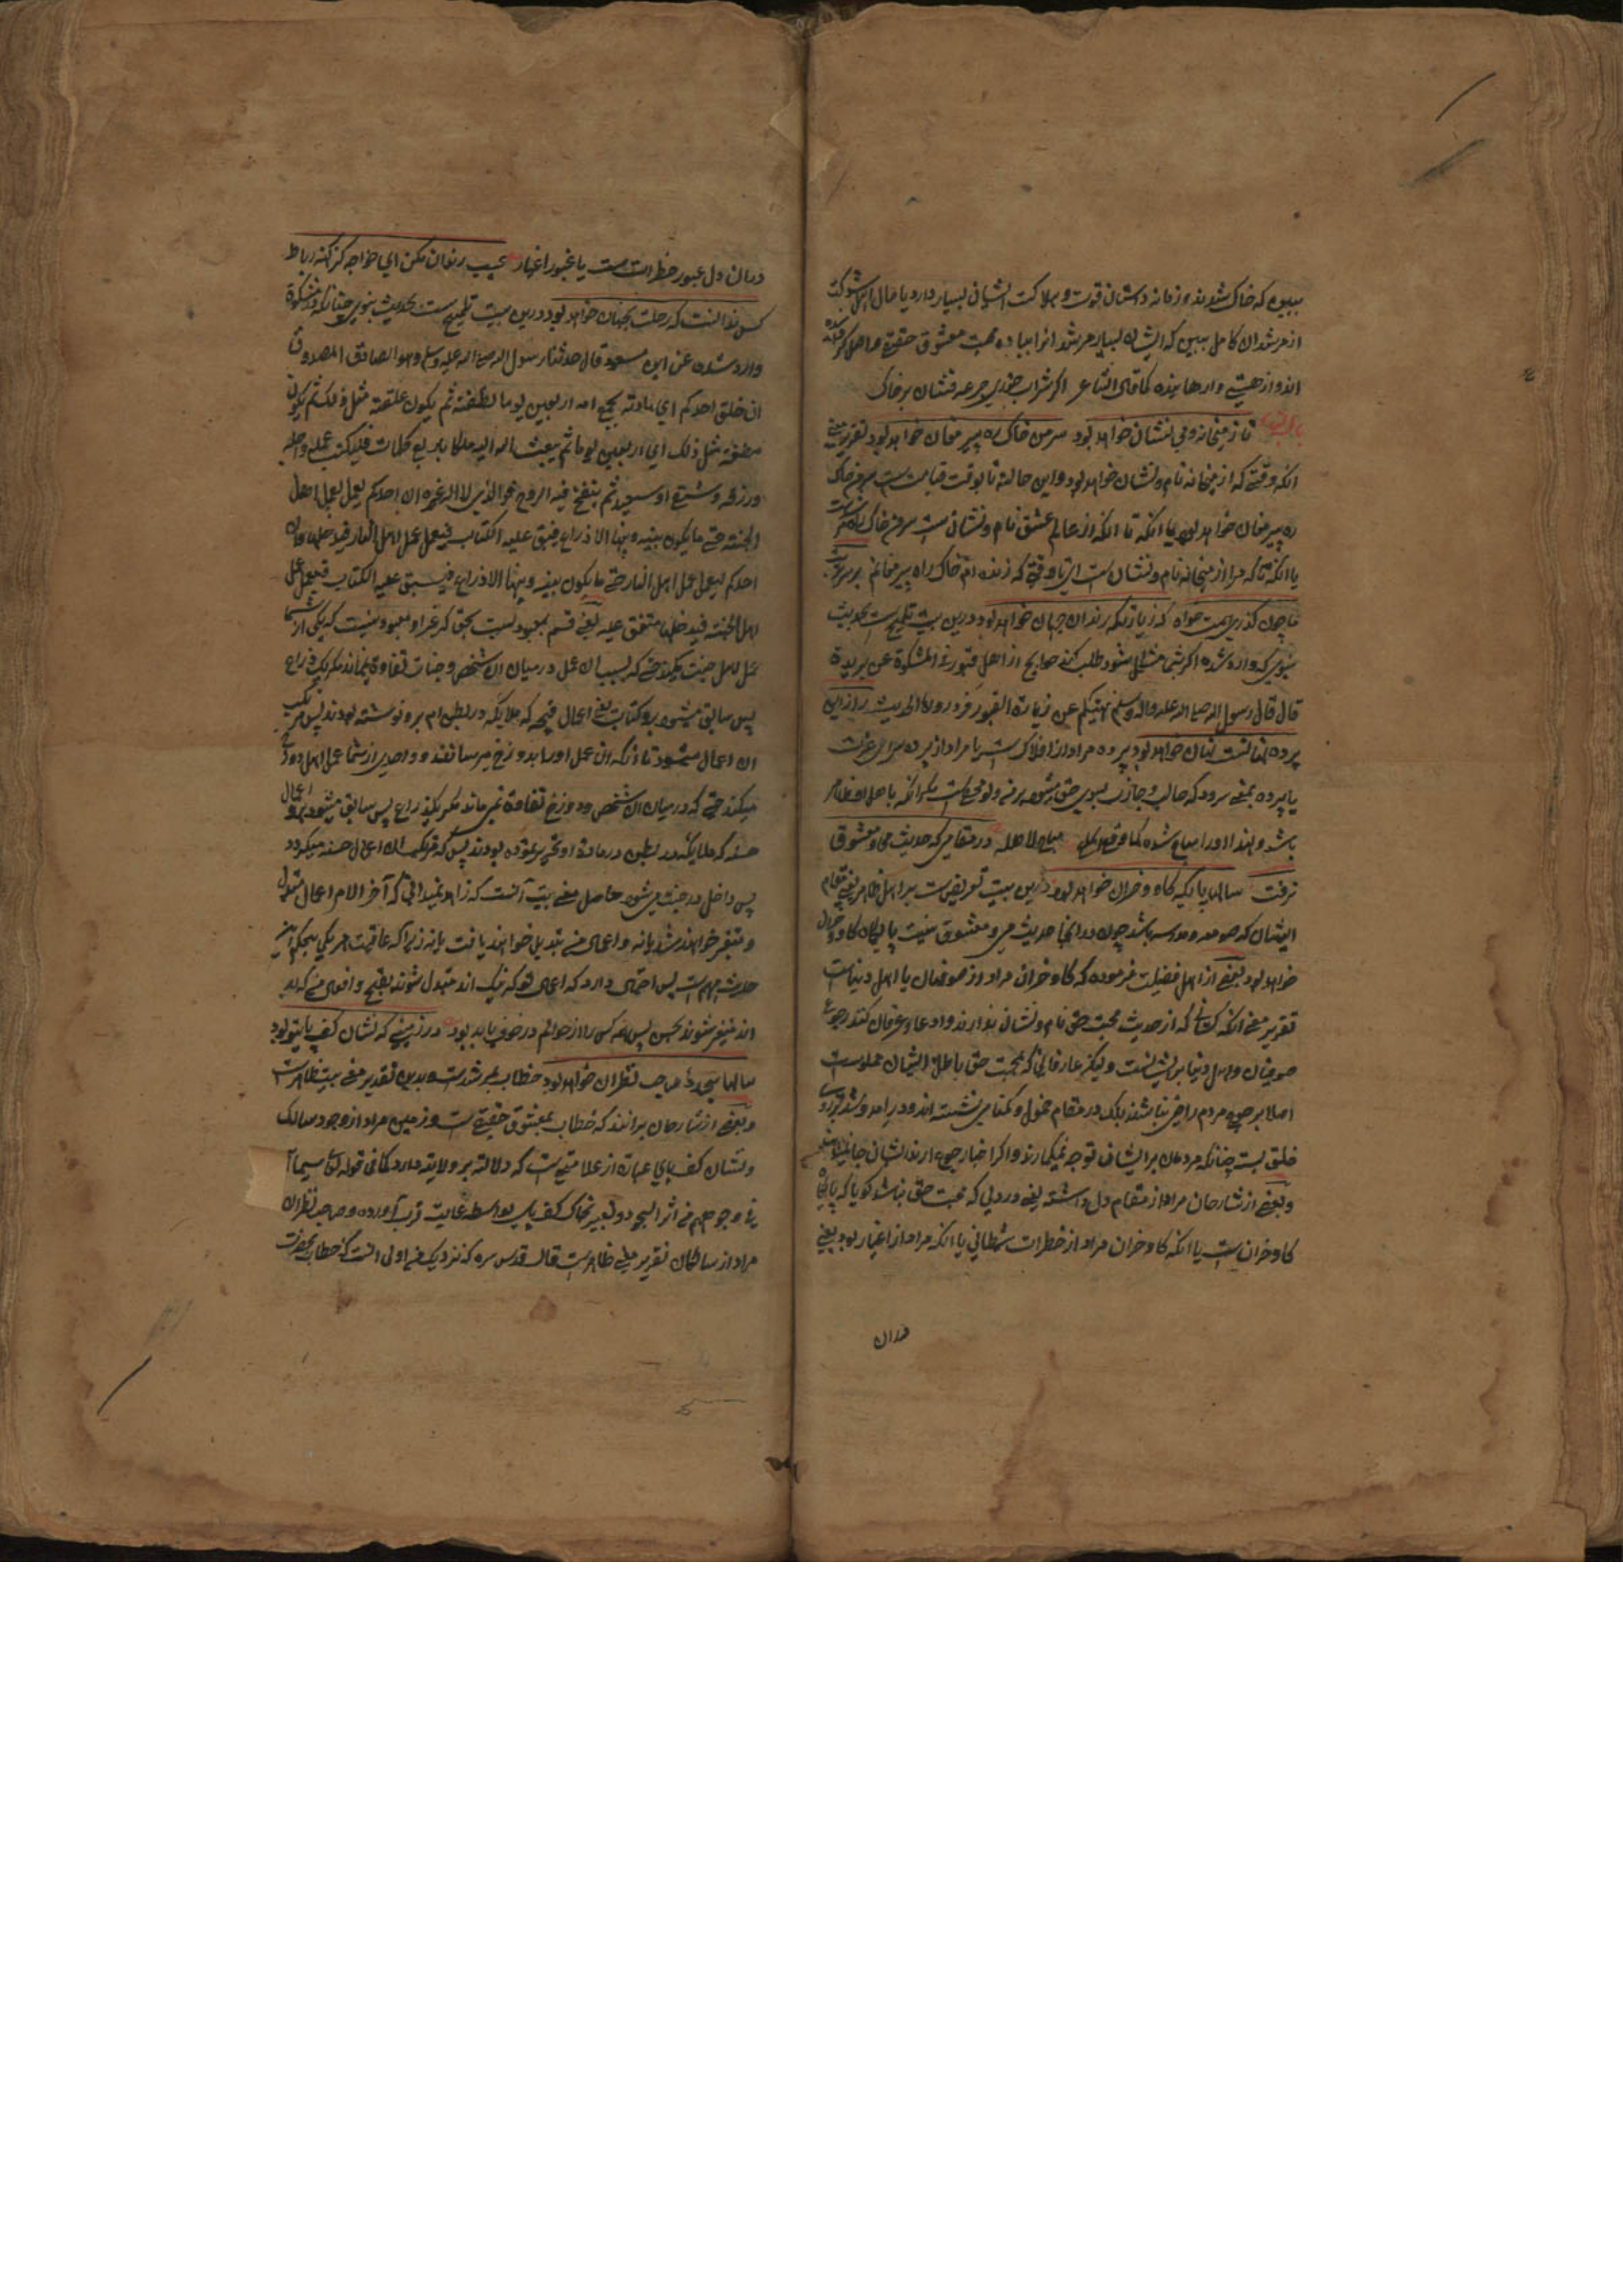 ببین که خاک شدند و زمانه دشمنان قوت و هلاکت ایشان بسیار دارد یا حال اهل شوکت
از مرشدان کامل ببین که ایشان بسیار مرشد انرا بباده محبت معشوق حقیقی واصل کرده
اند و از هستی وارهانیده کما قال الشاعر اکر شراب خوری جرعه فشان بر خاک
تا ز میخانه و می نام و نشان خواهد بود سر من خاک ره پیر مغان خواهد بود تقریر معنی
انکه وقتی که از میخانه نام و نشان خواهد بود و این حالت تا بوقت قیامت ست سر من خاک
ره پیر مغان خواهد بود یا انکه تا انکه از عالم عشق نام و نشان ست سر من خاک راه
یا انکه تا که مرا از میخانه نام و نشان ست ای تا وقتی که زنده ام خاک راه پیر مغانم بر سر تربت
ما چون کذری همت خواه که زیارتکه رندان جهان خواهد بود درین بیت تلمیح ست بحدیث
نبوی که وارد شده اکر شما مشکل شود طلب کنند حوایج از اهل قبور فی المشکوة عن بریدة
قال قال رسول الله صلی الله علیه واله وسلم نهیتکم عن زیارة القبور فزوروها الحدیث راز این
پرده نهانست نهان خواهد بود پرده مراد از افلاک ست یا مراد از پرده سرای عزت
یا پرده بمعنی سرود که جالب و جاذب بسوی حق میشود
باشد و لهذا او را مباح شده کما مباح لاهله در مقامی که حدیث می و معشوق
نرفت سالها پایکه کاو و خران خواهد بود درین بیت تعریض ست بر اهل ظاهر یعنی مقام
ایشان که صومعه و مدرسه باشد چون در انجا حدیث می و معشوق نیست پایکاه کاو و خران
خواهد بود بعضی از اهل فضیلت فرموده که کاو خران مراد از صوفیان یا اهل دنیاست
تقریر معنی انکه کسانی که از حدیث محبت حق نام و نشان ندارند و ادعاء عرفان کنند رجوع
صوفیان و اهل دنیا بر ایشانست ولیکن عارفانی که بمحبت حق باطن ایشان مملوست
اصلا برجوع مردم راضی نباشند بلکه در مقام خمول و کمنامی نشسته اند و در امد و شد بر روی
خلق بسته چنانکه مردمان بر ایشان توجه نمیکمارند و اکر احیانا رجوع ارند ایشان
و بعضی از شارحان مراد از مقام دل داشته یعنی در دلی که محبت حق نباشد کویا که پایکاه
کاو خران ست یا انکه کاو خران مراد از خطرات شیطانی یا انکه مراد از اغیار بود یعنی
دران
دران دل عبور خطرات ست یا عبور اغیار عیب رندان مکن ای خواجه کزین کهنه رباط
کس ندانست که رحلت بچسان خواهد بود درین بیت تلمیح ست بحدیث نبوی چنانکه در مشکوة
وارد شده عن ابن مسعود قال حدثنا رسول الله صلی الله علیه وسلم وهو الصادق المصدوق
ان خلق احدکم ای مادته یجمع امه اربعین یوما نطفة ثم یکون علقة مثل ذلک ثم یکون
مضغة مثل ذلک ای اربعین یوما ثم یبعث الله الیه ملکا باربع کلمات فیکتب عمله واجله
ورزقه وشقی او سعید ثم ینفخ فیه الروح فوالذی لا اله غیره ان احدکم لیعمل بعمل اهل
الجنة حتی ما یکون بینه وبینها الا ذراع فیسبق علیه الکتاب فیعمل بعمل اهل النار فیدخلها وان
احدکم لیعمل بعمل اهل النار حتی ما یکون بینه وبینها الا ذراع فیسبق علیه الکتاب فیعمل بعمل
اهل الجنة فیدخلها متفق علیه یعنی قسم بمعبودیست بحق که غیر او معبود نیست که یکی از شما
عمل اهل جنت میکند حتی که بسبب ان عمل در میان ان شخص و جنات تفاوة نماند مکر یک ذراع
پس سابق میشود برو کتابت یعنی اعمال قبیحه که ملایکه در بطن ام برو نوشته بودند پس مرتکب
ان اعمال میشود تا انکه ان عمل او را بدوزخ میرسانند و واحدی از شما عمل اهل دوزخ
میکند حتی که در میان ان شخص و دوزخ تفاوة نمی ماند مکر یکذراع پس سابق میشود برو اعمال
حسنه که ملایکه در بطن مادر او تحریر نموده بودند پس که مرتکب ان اعمال حسنه میکردد
پس داخل در جنت می شود حاصل معنی بیت انست که زاهد نمیدانی که آخر الامر اعمال متبدل
و متغیر خواهند شد یا نه و اعمال من تبدیل خواهند یافت یا نه زیرا که عاقبت هر یکی بحکم این
حدیث مبهم ست پس احتمال دارد که اعمال تو که نیک اند متبدل شوند بقبیح و افعال من که بد
اند متغیر شوند بحسن پس همه کس را از خواتم در خوف باید بود در زمینی که نشان کف پای تو بود
سالها سجده صاحب نظران خواهد بود خطاب بمرشدست و بدین تقدیر معنی بیت ظاهرست
و بعضی از شارحان برانند که خطاب بمعشوق حقیقی ست و زمین مراد از وجود سالک
و نشان کف پای عبارة از علامتی ست که دلالت بر ولایت دارد کما فی قوله تعالی سیماهم
فی وجوههم من اثر السجود و تعبیر بخاک کف پای بواسطه غایت قرب آورده و صاحب نظران
مراد از سالکان تقریر معنی ظاهرست قال قدس سره که نزدیک من اولی انست که خطاب بحضرت